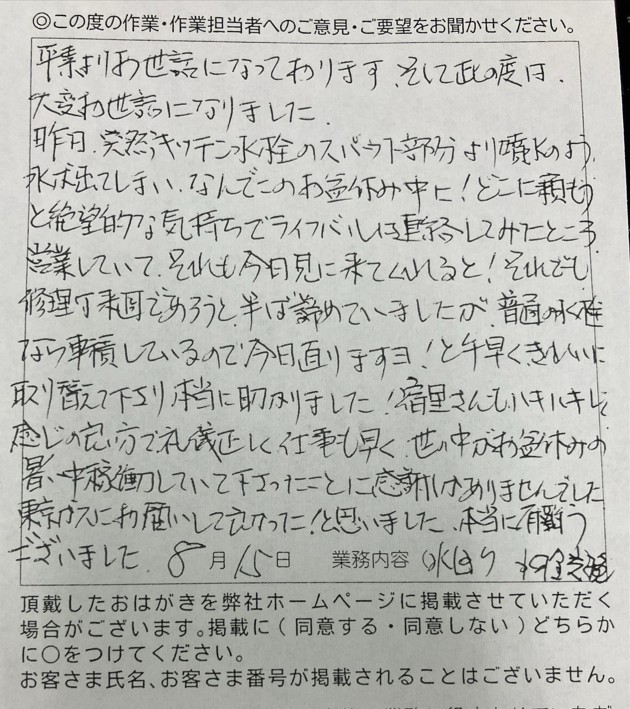 ◎この度の作業・作業担当者へのご意見・ご要望をお聞かせください。
平素よりお世話になっております。そして此の度は、
大変お世話になりました。
昨日、突然キッチン水栓のスパウト部分より噴水のよう、
水が出てしまい、なんでこのお盆休み中に!どこに頼もう
と絶望的な気持ちでライフバルに連絡してみたところ
営業していて、それも今日見に来てくれると!それでも
修理は来週であろうと、半ば諦めていましたが、普通の水栓
なら車積しているので今日直りますヨ!と手早くきれいに
取り替えて下さり本当に助かりました!宿里さんもハキハキして
感じの良い方で礼儀正しく仕事も早く、世の中がお盆休みの
暑い中稼働していて下さったことに感謝しかありませんでした
東京ガスにお願いして良かった!と思いました。本当に有難う
ございました。8月15日 業務内容 水回り
頂戴したおはがきを弊社ホームページに掲載させていただく
場合がございます。掲載に(同意する・同意しない)どちらか
に○をつけてください。
お客さま氏名、お客さま番号が掲載されることはございません。